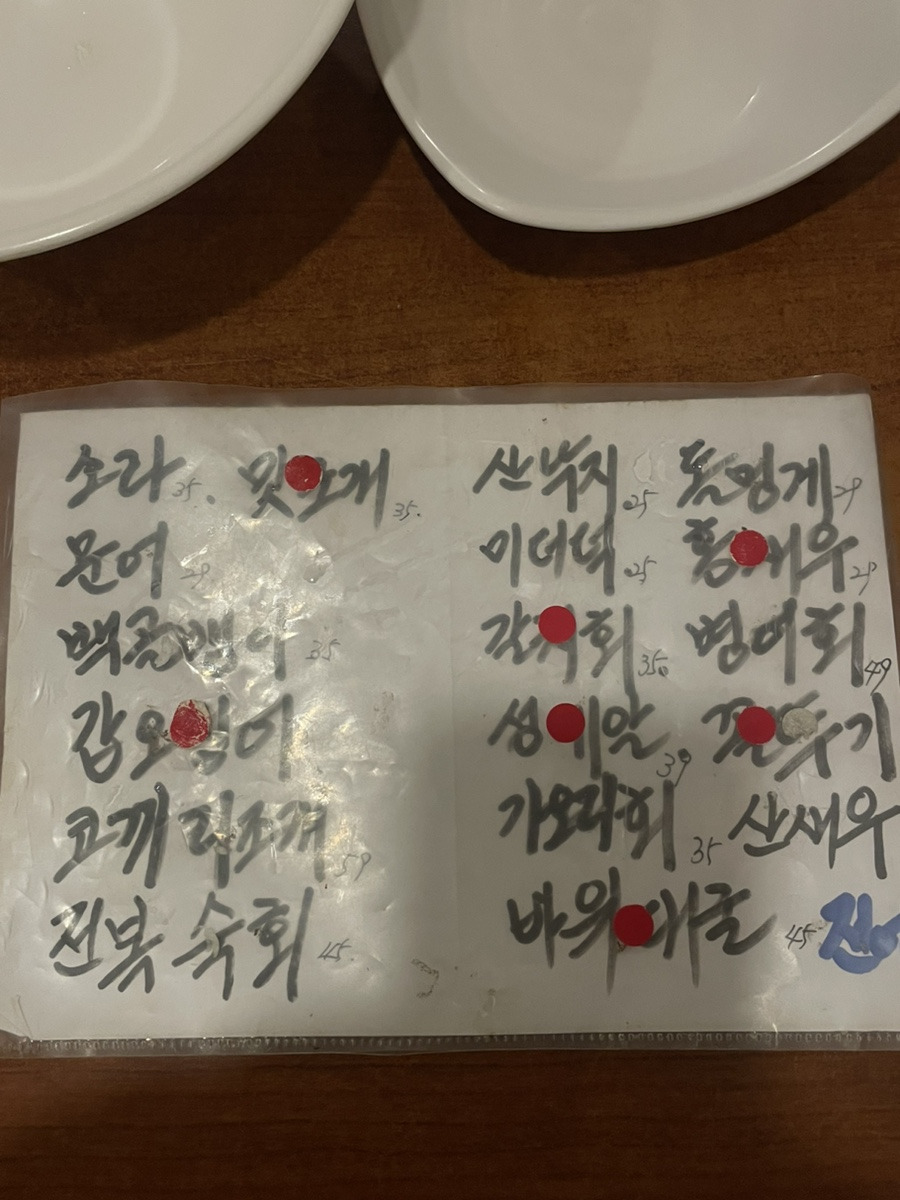 소라 35. 맛조개 35.
문어 29
백골뱅이 35
갑오징어
코끼리조개 59
전복 숙회 45
산낙지 25 돌멍게 29
미더덕 25 홍새우 29
갈치회 35. 병어회 49
성게알 39 꼴뚜기
가오리회 35 산새우
바위대굴 45